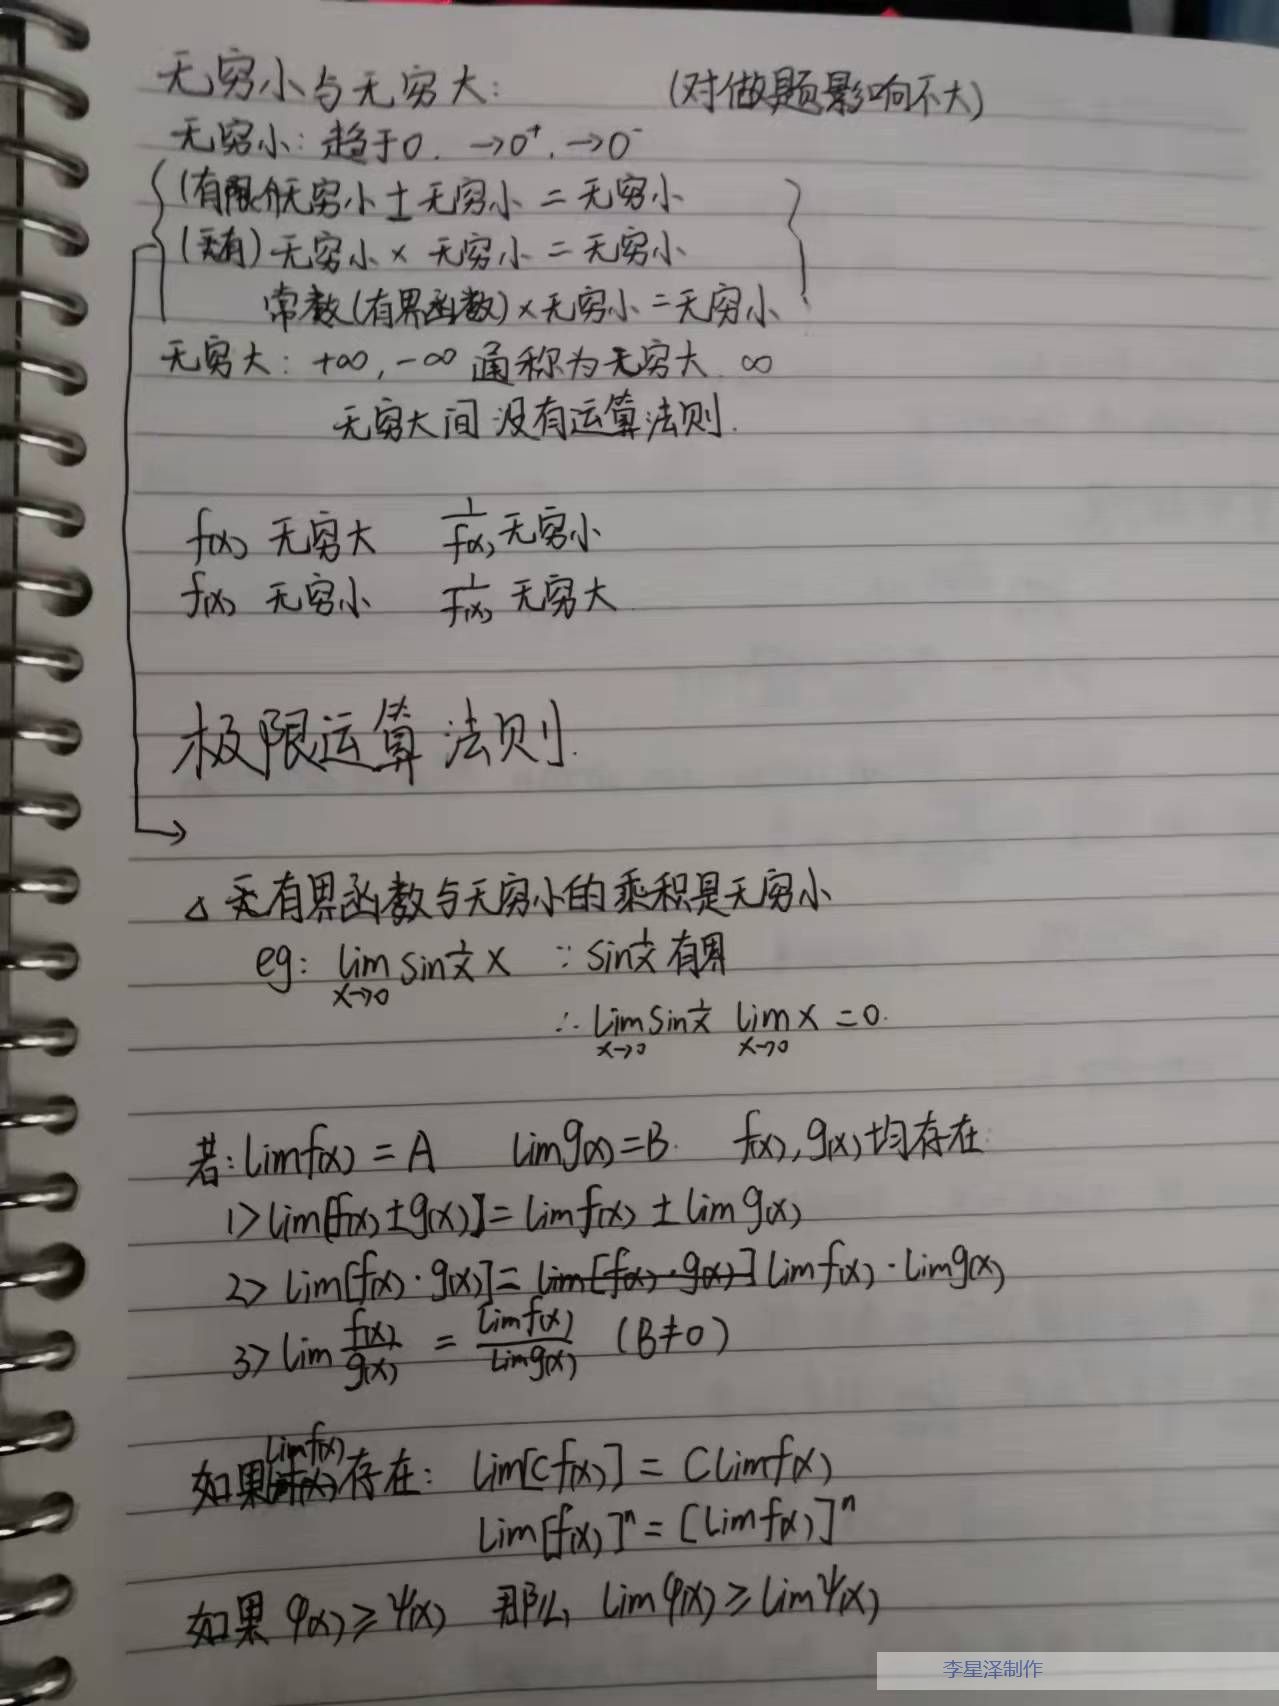 无穷小与无穷大: (对做题影响不大)
无穷小: 趋于0. →0⁺, →0⁻
(有限个)无穷小 ± 无穷小 = 无穷小
(有) 无穷小 × 无穷小 = 无穷小
常数(有界函数)×无穷小 = 无穷小
无穷大: +∞, -∞ 通称为无穷大 ∞
无穷大间没有运算法则.
f(x) 无穷大 1/f(x) 无穷小
f(x) 无穷小 1/f(x) 无穷大
极限运算法则.
△ 有界函数与无穷小的乘积是无穷小
eg: lim x→0 sin 1/x x ∵ sin 1/x 有界
∴ lim x→0 sin 1/x lim x→0 x = 0.
若: lim f(x) = A lim g(x) = B. f(x), g(x) 均存在
1> lim[f(x) ± g(x)] = lim f(x) ± lim g(x)
2> lim[f(x) · g(x)] = lim[f(x) · g(x)] lim f(x) · lim g(x)
3> lim f(x)/g(x) = lim f(x)/lim g(x) (B≠0)
如果 lim f(x) 存在: lim[C f(x)] = C lim f(x)
lim[f(x)]ⁿ = [lim f(x)]ⁿ
如果 φ(x) ≥ ψ(x) 那么, lim φ(x) ≥ lim ψ(x)
李星泽制作